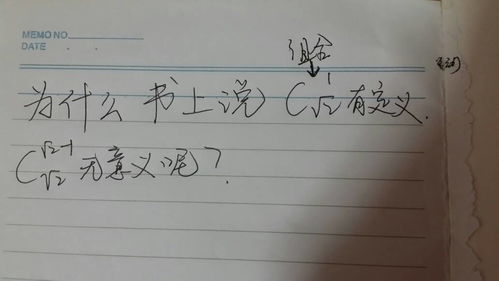 MEMO NO.
DATE
组合
为什么书上说 C¹√2 有定义.
C^(√2-1)√2 无意义呢?